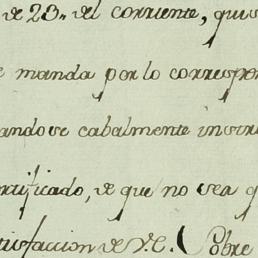 de 23,, del corriente, quis
e manda por lo correspon
andose cabalmente instru
rtificado, de que no sea q
tisfaccion de V.E. Pobre